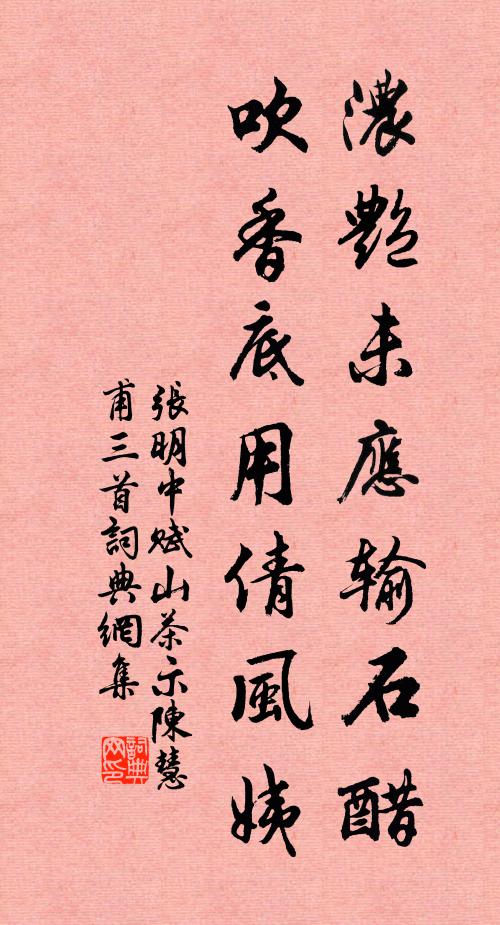 濃艷未應輸石醋
吹香底用倩風姨
張明中賦山茶示陳慧
甫三首詞典網集
詞典网印